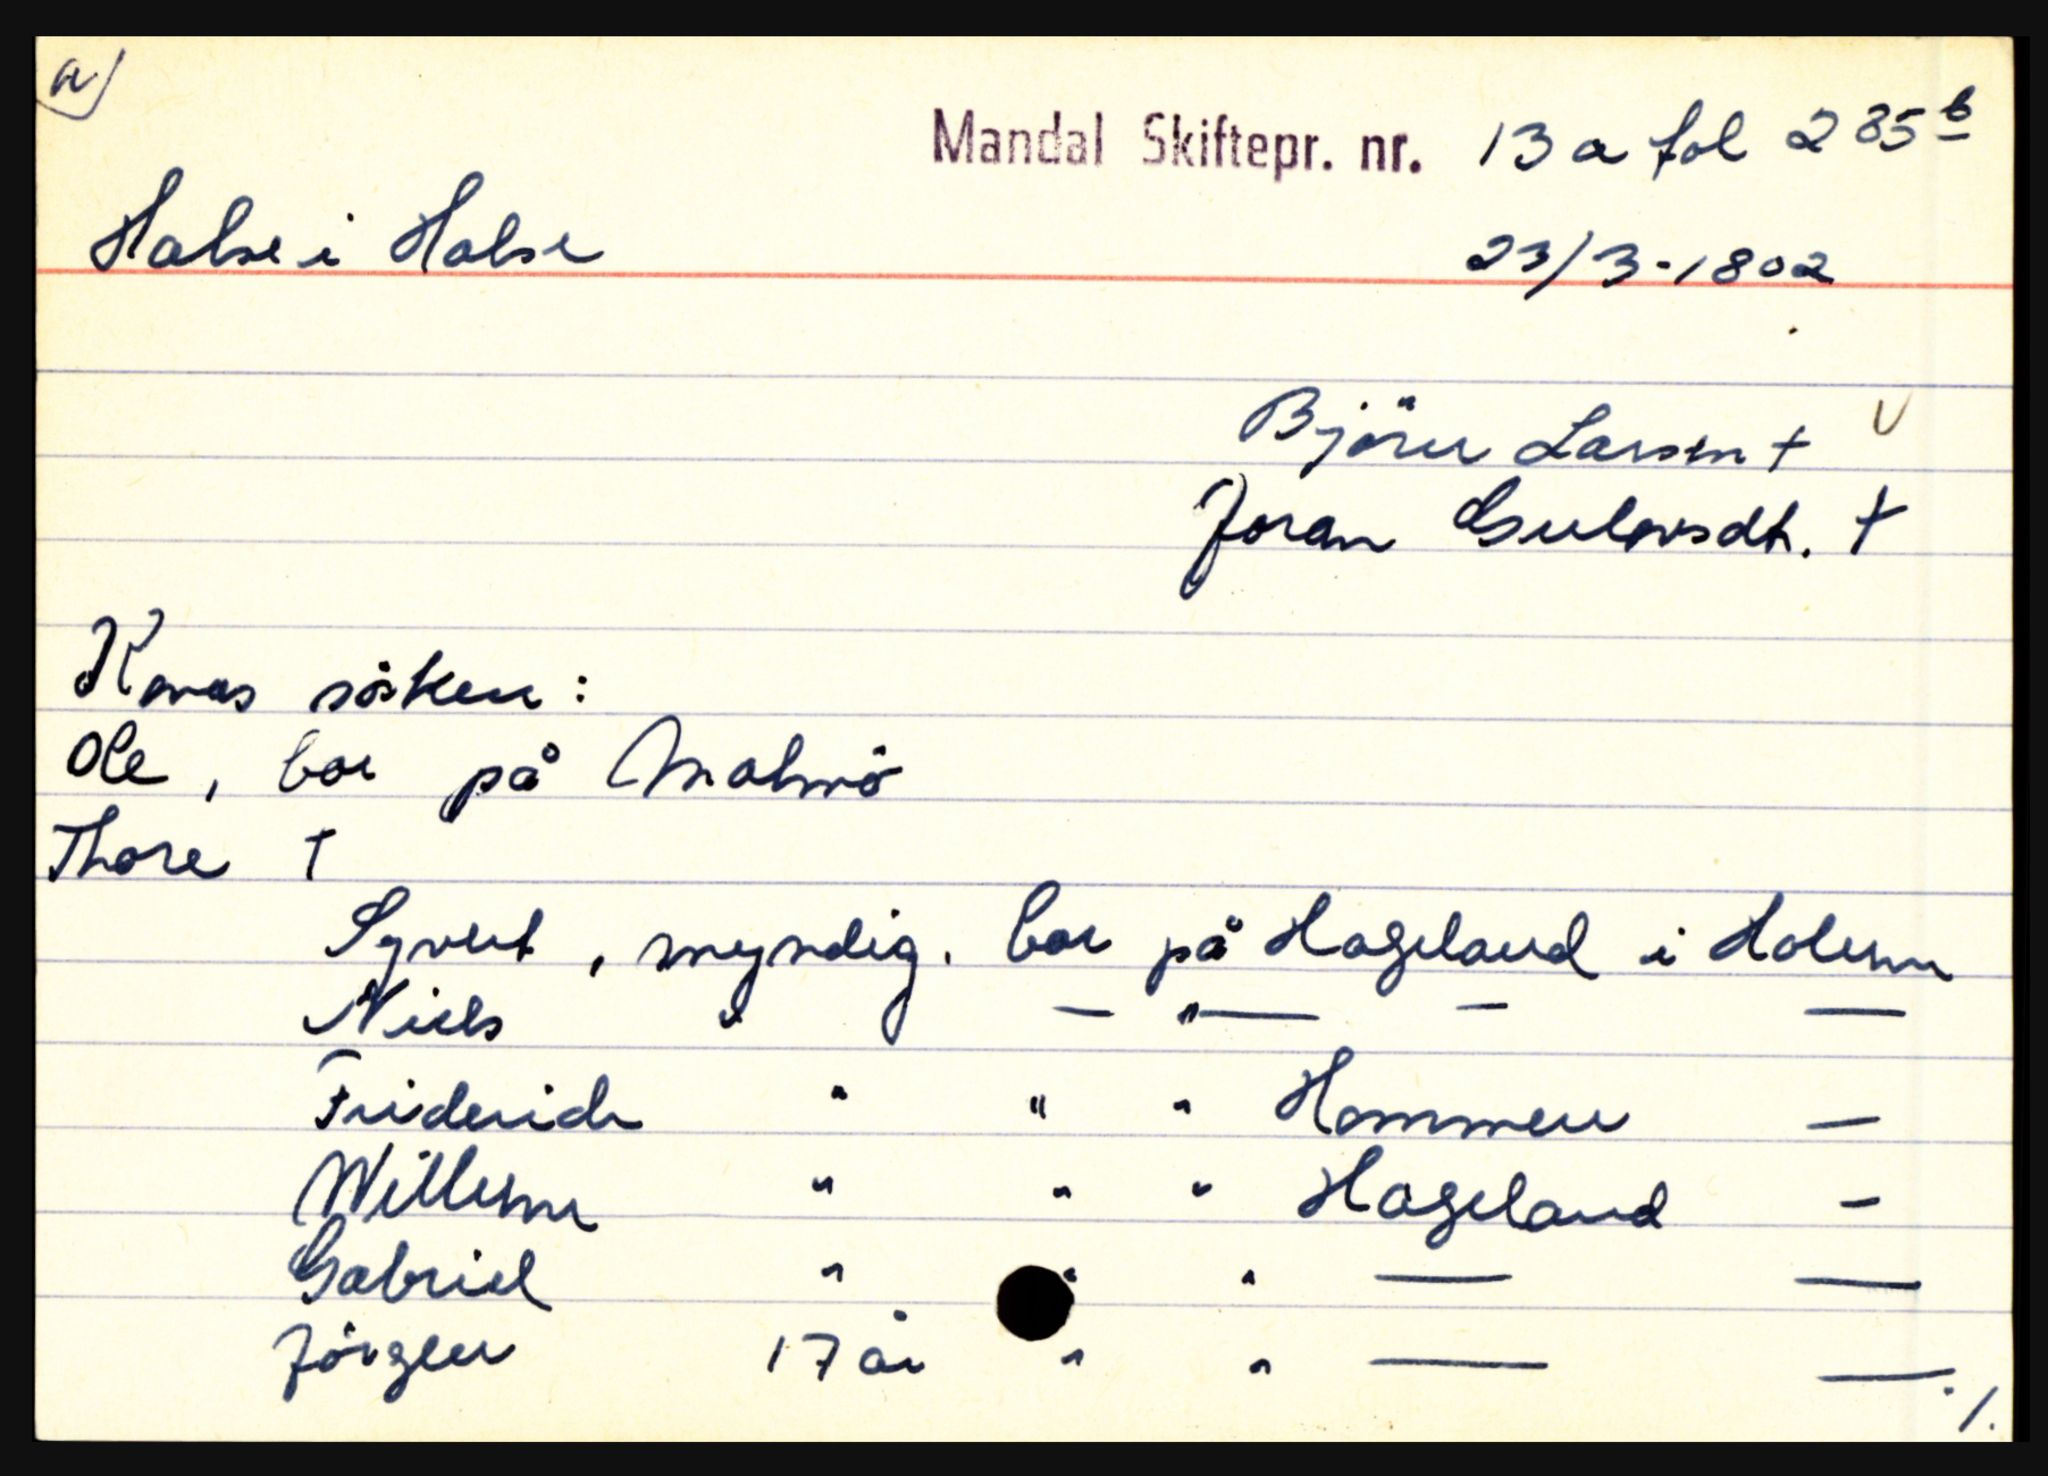 a)
Mandal Skiftepr. nr. 13 a fol 285 b
Halse i Halse 23/3-1802
Björn Larsen † V
Joran Gulovsdt. †
Konas sösken:
Ole, bor på Malmö
Thore †
Syvert, myndig. bor på Hageland i Holum
Niels " — " — — —
Friderich " " " Hommen —
Willum " " " Hageland —
Gabriel " " " — —
Jörgen 17 år " " — —
./.